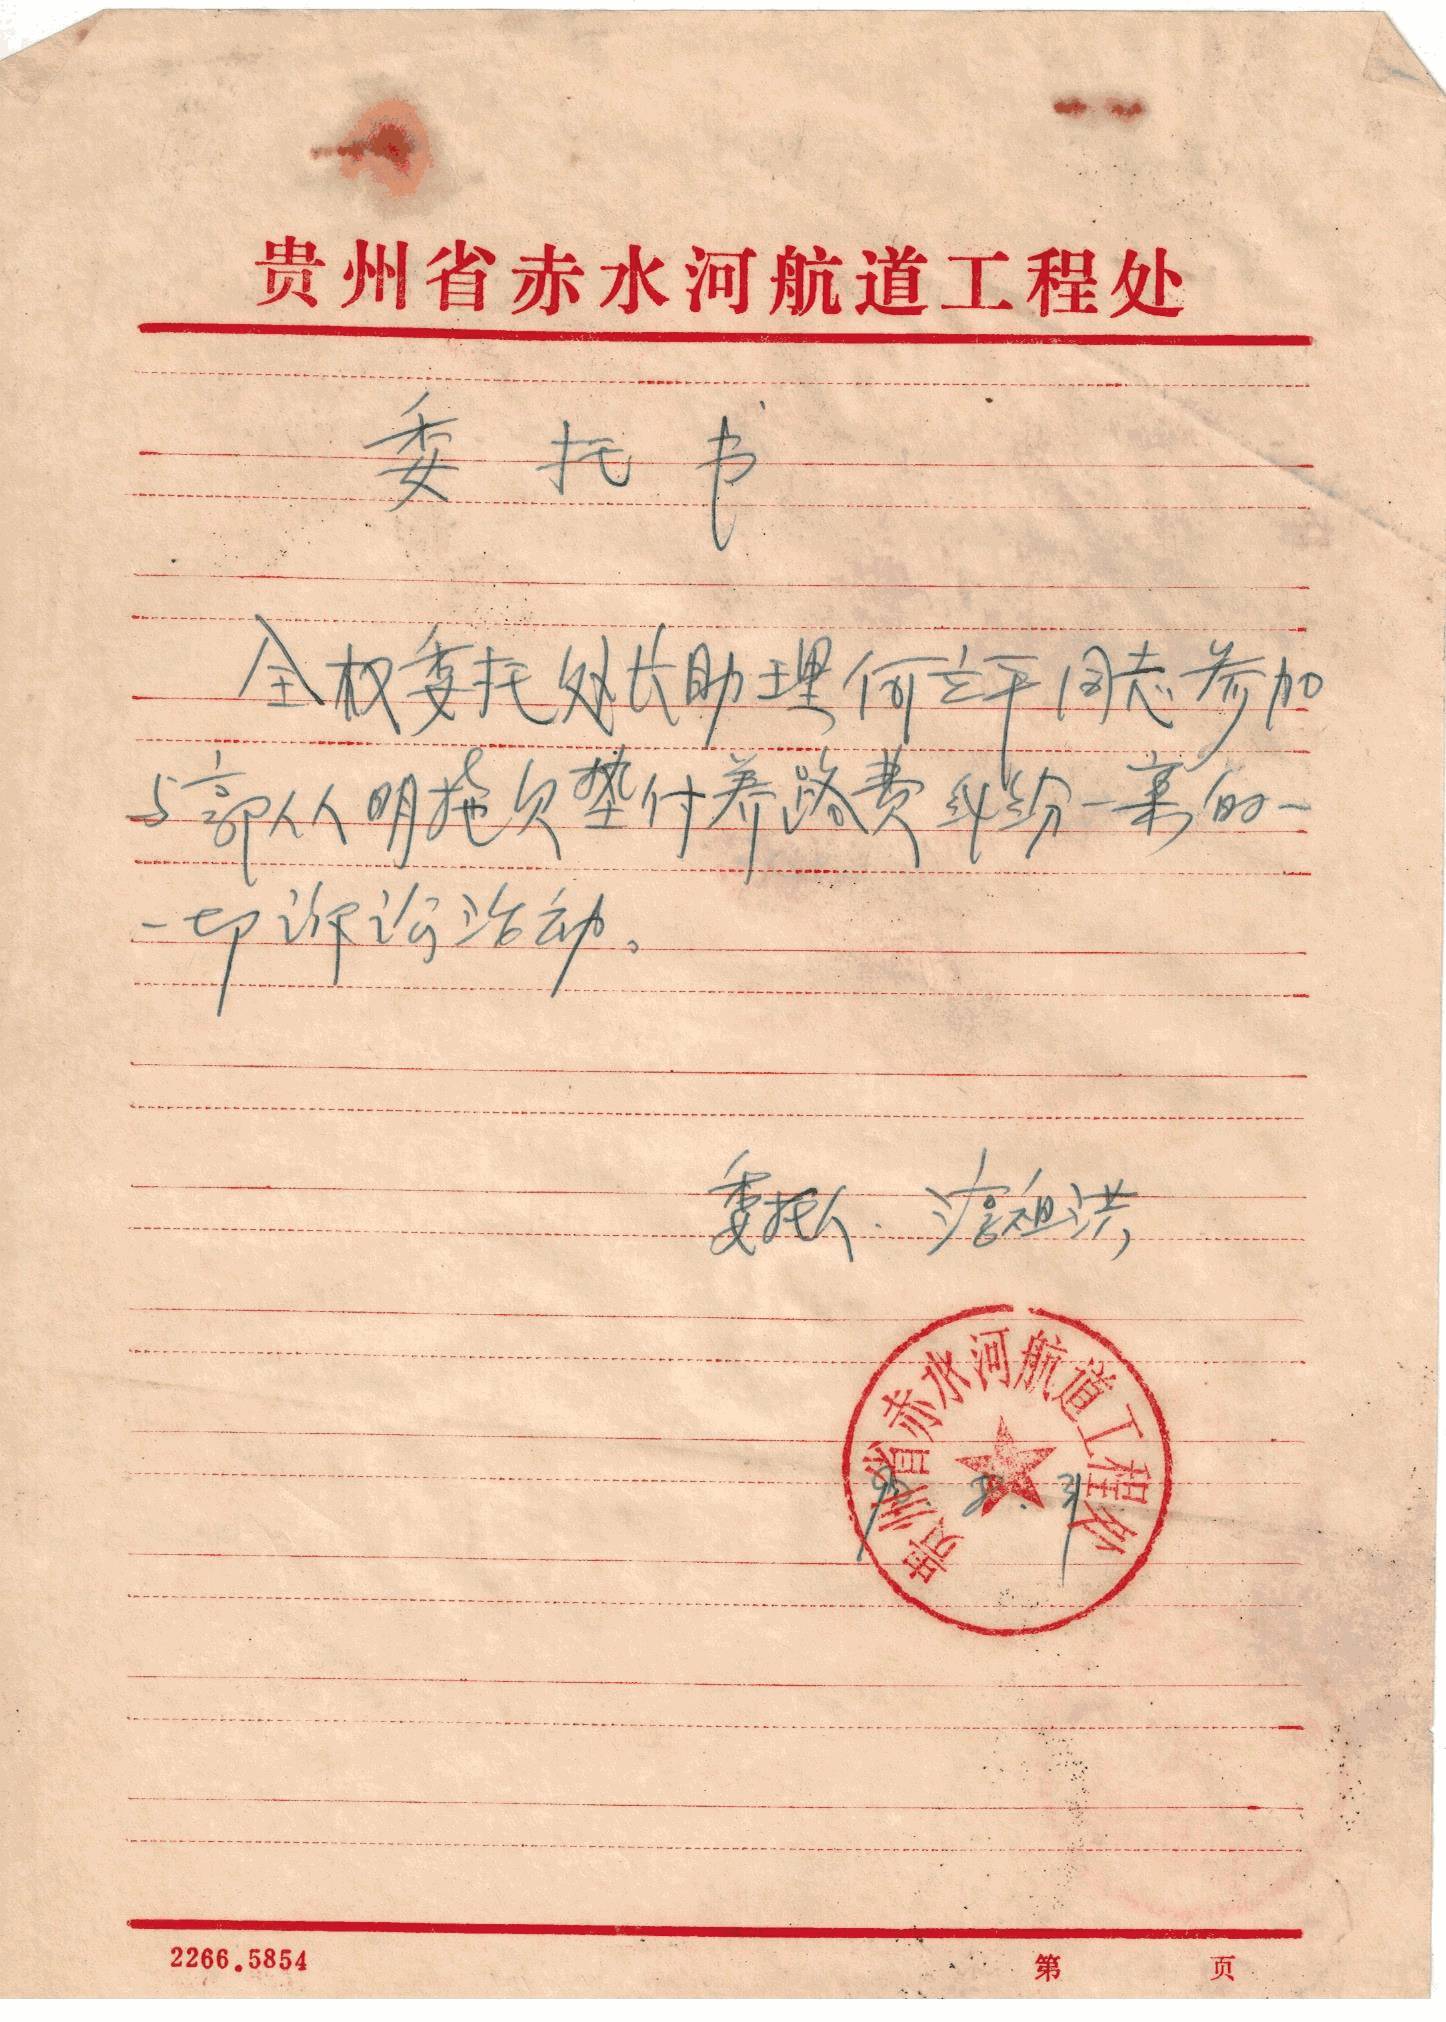 贵州省赤水河航道工程处
委托书
全权委托处长助理何立平同志参加
与郭从明拖欠垫付养路费纠纷一案的一
一切诉讼活动。
委托人 祖洪
贵州省赤水河航道工程处
2266.5854
第 页